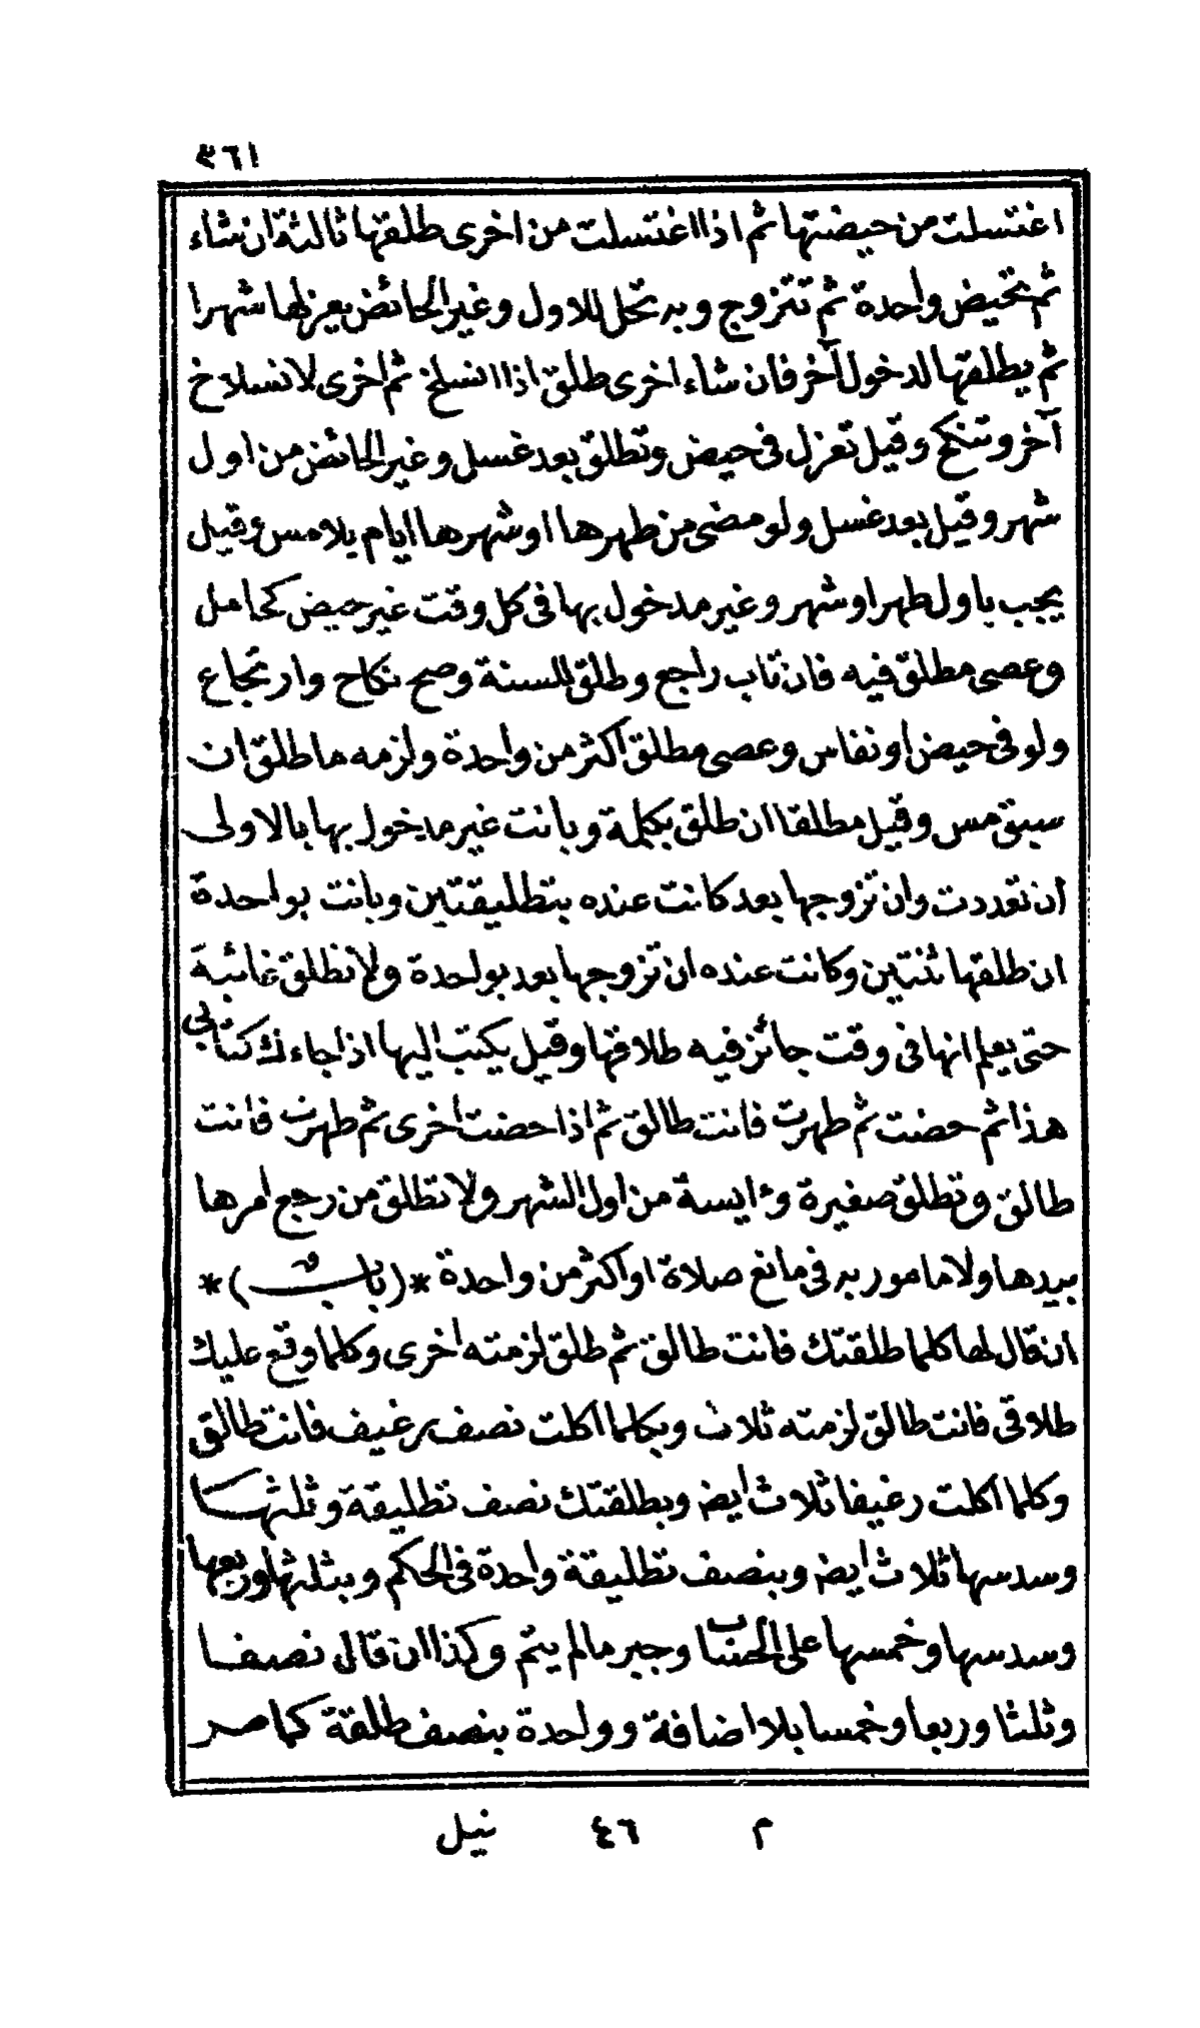 ٣٦١
اغتسلت من حيضتها ثم اذا اغتسلت من اخرى طلقها ثالثة ان شاء
ثم تحيض واحدة ثم تتزوج وبه تحل للاول وغير الحائض يعزلها شهرا
ثم يطلقها لدخول آخر فان شاء اخرى طلق اذا انسلخ ثم اخرى لانسلاخ
آخر وتنكح وقيل تعزل فى حيض وتطلق بعد غسل وغير الحائض من اول
شهر وقيل بعد غسل ولو مضى من طهرها او شهرها ايام بلا مس وقيل
يجب باول طهر او شهر وغير مدخول بها فى كل وقت غير حيض كحامل
وعصى مطلق فيه فان تاب راجع وطلق للسنة وصح نكاح وارتجاع
ولو فى حيض او نفاس وعصى مطلق اكثر من واحدة ولزمه ما طلق ان
سبق مس وقيل مطلقا ان طلق بكلمة وبانت غير مدخول بها بالاولى
ان تعددت وان تزوجها بعد كانت عنده بتطليقتين وبانت بواحدة
ان طلقها ثنتين وكانت عنده ان تزوجها بعد بواحدة ولا تطلق غائبة
حتى يعلم انها فى وقت جائز فيه طلاقها وقيل يكتب اليها اذا جاءك كتابى
هذا ثم حضت ثم طهرت فانت طالق ثم اذا حضت اخرى ثم طهرت فانت
طالق وتطلق صغيرة وءايسة من اول الشهر ولا تطلق من رجع امرها
بيدها ولا مامور به فى مانع صلاة او اكثر من واحدة *(باب)*
ان قال لها كلما طلقتك فانت طالق ثم طلق لزمته اخرى وكلما وقع عليك
طلاقى فانت طالق لزمته ثلاث وبكلما اكلت نصف رغيف فانت طالق
وكلما اكلت رغيفا ثلاث ايض وبطلقتك نصف تطليقة وثلثها
وسدسها ثلاث ايض وبنصف تطليقة واحدة فى الحكم وبثلثها وربعها
وسدسها وخمسها على الحساب وجبر مالم يتم وكذا ان قال نصفا
وثلثا وربعا وخمسا بلا اضافة وواحدة بنصف طلقة كما مر
م ٤٦ نيل